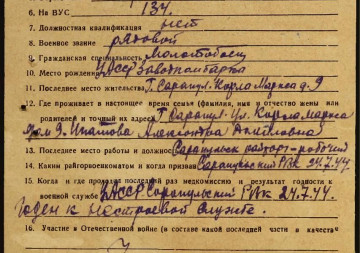 6. На ВУС 134.
7. Должностная квалификация нет
8. Военное звание рядовой
9. Гражданская специальность Молотобоец
10. Место рождения УАССР
11. Последнее место жительства Г. Сарапул. Карла Маркса д-9
12. Где проживает в настоящее время семья (фамилия, имя и отчество жены или
родителей и точный их адрес) Г Сарапул ул. Карла Маркса
дом 9. Ипатова Александра
13. Последнее место работы и должность Сарапульск рабочий
14. Каким райгорвоенкоматом и когда призван Сарапульский РВк 24.7.44.
15. Когда и где проходил последний раз медкомиссию и результат годности к
военной службе УАССР Сарапульский РВк 24.7.44.
Годен к нестроевой службе.
16. Участие в Отечественной войне (в составе какой последней части и качестве